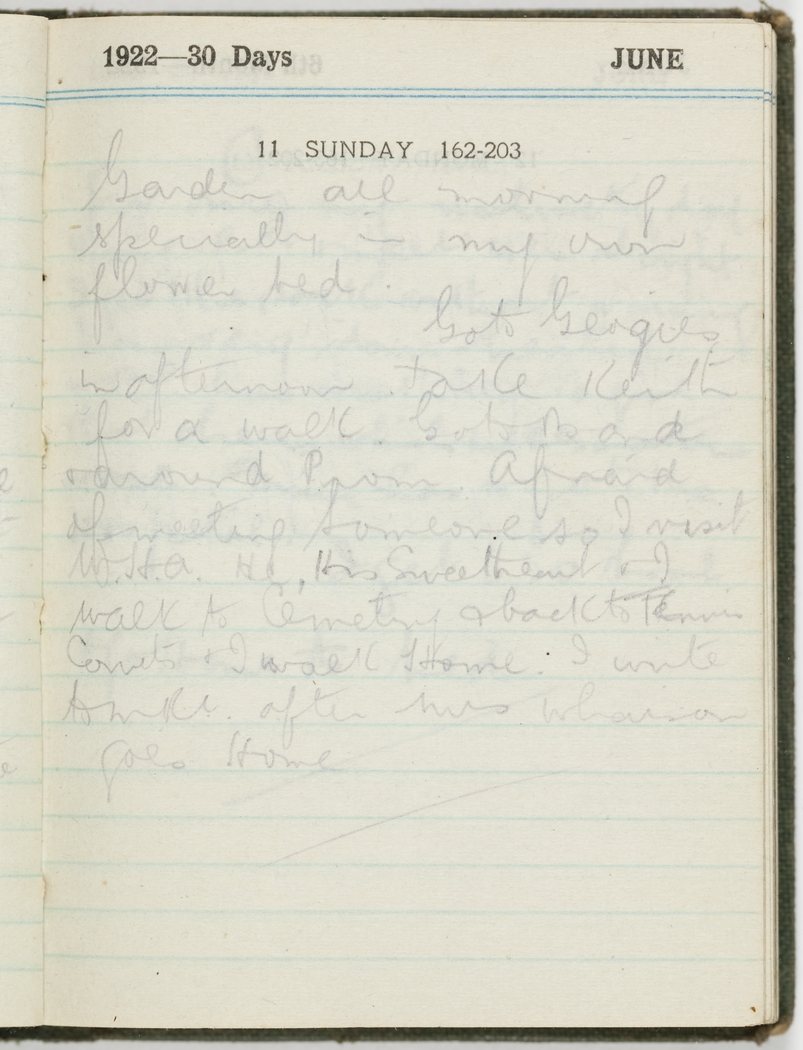 1922—30 Days JUNE
11 SUNDAY 162-203
Garden all morning
specially in my own
flower bed.
Go to Georgies
in afternoon. Take Keith
for a walk. Go to Band
& around Prom. Afraid
of meeting someone so I visit
W.H.A. He, His Sweetheart & I
walk to Cemetery & back to Tennis
Courts & I walk Home. I write
to after Mrs
goes Home